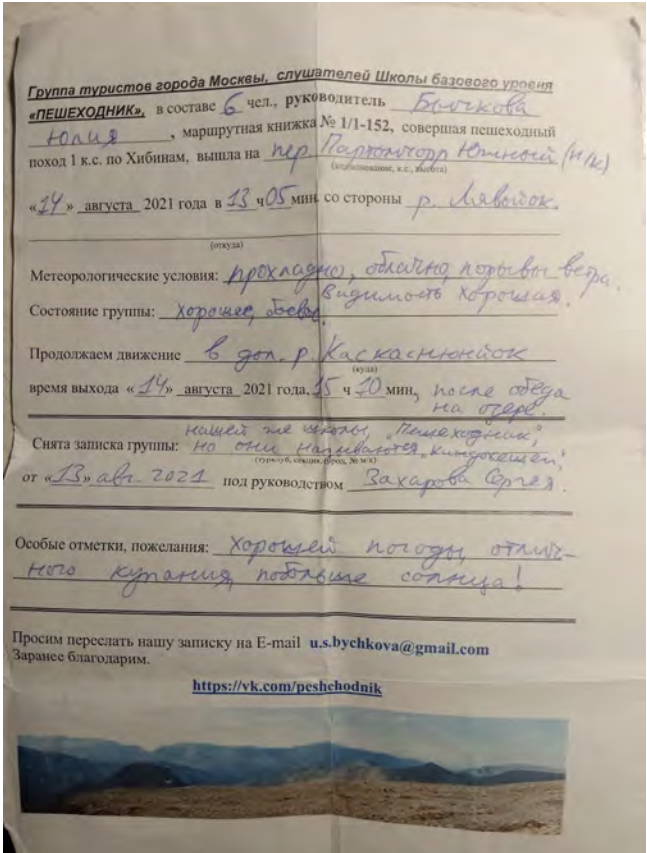 Группа туристов города Москвы, слушателей Школы базового уровня
«ПЕШЕХОДНИК», в составе 6 чел., руководитель Бычкова
Юлия, маршрутная книжка № 1/1-152, совершая пешеходный
поход 1 к.с. по Хибинам, вышла на пер. Партомчорр Южный (н/к)
(наименование, к.с., высота)
«14» августа 2021 года в 13 ч 05 мин. со стороны р. Лявойок.
(откуда)
Метеорологические условия: прохладно, облачно, порывы ветра.
Видимость хорошая.
Состояние группы: хорошее, боевое.
Продолжаем движение в дол. р. Каскаснюнйок
(куда)
время выхода «14» августа 2021 года, 15 ч 10 мин, после обеда
на озере.
нашей же школы, "Пешеходник",
Снята записка группы: но они называются "киндокешеи",
(турклуб, секция, город, № м/к)
от «13» авг. 2021 под руководством Захарова Сергея.
Особые отметки, пожелания: Хорошей погоды, отлич-
ного купания, побольше солнца!
Просим переслать нашу записку на E-mail u.s.bychkova@gmail.com
Заранее благодарим.
https://vk.com/peshehodnik